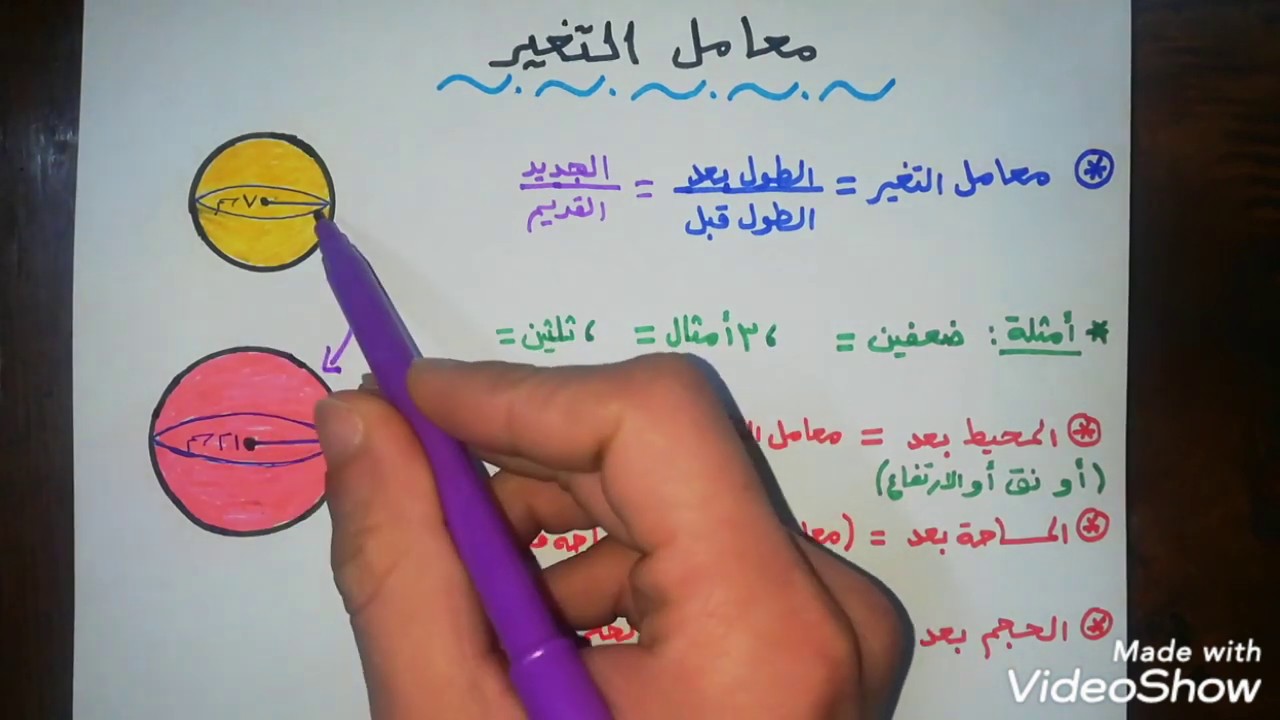 معامل التغير
* معامل التغير = الطول بعد / الطول قبل = الجديد / القديم
٧سم
* أمثلة: ضعفين = ، ٣ أمثال = ، ثلثين =
٢١سم
* المحيط بعد = معامل
(أو نق أو الارتفاع)
* المساحة بعد = (
* الحجم بعد
Made with
VideoShow